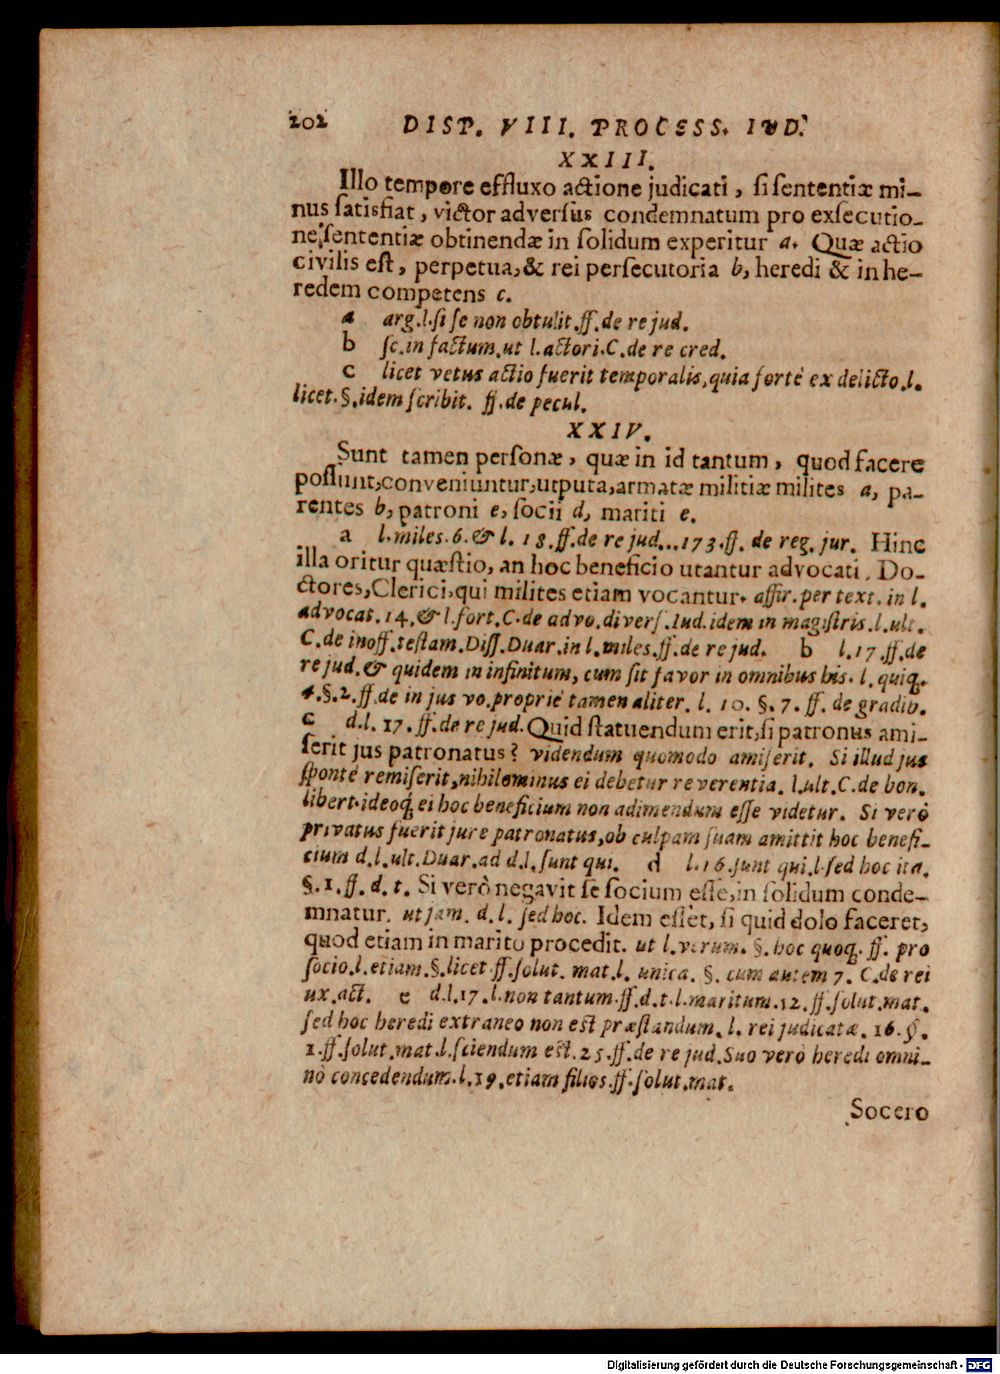 202 DISP. VIII. PROCESS. IUD.
XXIII.
Illo tempore effluxo actione judicati, si sententiæ mi-
nus satisfiat, victor adversus condemnatum pro exsecutio-
ne sententiæ obtinendæ in solidum experitur a. Quæ actio
civilis est, perpetua, & rei persecutoria b, heredi & in he-
redem competens c.
a arg. l. si se non obtulit. ff. de re jud.
b sc. in factum. ut l. actori. C. de re cred.
c licet vetus actio fuerit temporalis, quia fortè ex delicto. l.
licet. §. idem scribit. ff. de pecul.
XXIV.
Sunt tamen personæ, quæ in id tantum, quod facere
possunt, conveniuntur, utputa, armatæ militiæ milites a, pa-
rentes b, patroni e, socii d, mariti e.
a l. miles. 6. & l. 18. ff. de re jud... 173. ff. de reg. jur. Hinc
illa oritur quæstio, an hoc beneficio utantur advocati. Do-
ctores, Clerici, qui milites etiam vocantur. affir. per text. in l.
advocat. 14. & l. fort. C. de advo. divers. Iud. idem in magistris. l. ult.
C. de inoff. testam. Diss. Duar. in l. miles. ff. de re jud. b l. 17. ff. de
re jud. & quidem in infinitum, cum sit favor in omnibus his. l. quiq.
4. §. 2. ff. de in jus vo. propriè tamen aliter. l. 10. §. 7. ff. de gradib.
c d. l. 17. ff. de re jud. Quid statuendum erit, si patronus ami-
serit jus patronatus? videndum quomodo amiserit. Si illud jus
spontè remiserit, nihilominus ei debetur reverentia. l. ult. C. de bon.
libert. ideoq́ ei hoc beneficium non adimendum esse videtur. Si verò
privatus fuerit jure patronatus, ob culpam suam amittit hoc benefi-
cium d. l. ult. Duar. ad d. l. sunt qui. d l. 16. sunt qui. l. sed hoc ita.
§. 1. ff. d. t. Si verò negavit se socium esse, in solidum conde-
mnatur. ut jam. d. l. sed hoc. Idem esset, si quid dolo faceret,
quod etiam in marito procedit. ut l. verum. §. hoc quoq. ff. pro
socio. l. etiam. §. licet ff. solut. mat. l. unica. §. cum autem 7. C. de rei
ux. act. e d. l. 17. l. non tantum. ff. d. t. l. maritum. 12. ff. solut. mat.
sed hoc heredi extraneo non est præstandum. l. rei judicatæ. 16. §.
1. ff. solut. mat. l. sciendum est. 25. ff. de re jud. Suo verò heredi omni-
nò concedendum. l. 19. etiam filios. ff. solut. mat.
Socero
Digitalisierung gefördert durch die Deutsche Forschungsgemeinschaft - DFG